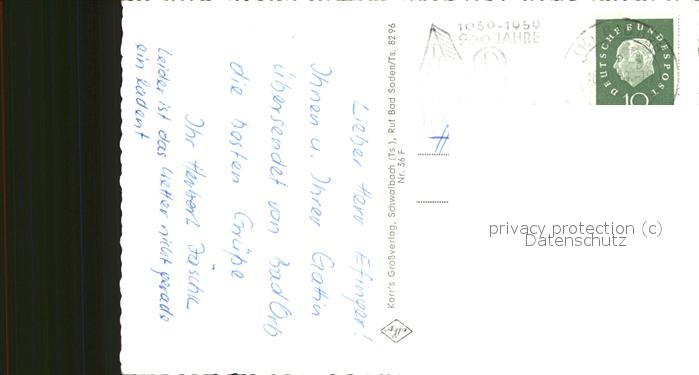 Lieber Herr Efinger!
Ihnen u. Ihrer Gattin
übersendet von Bad Orb
die besten Grüße
Ihr Herbert
Leider ist das Wetter nicht gerade
ein ladent
Karr's Großverlag, Schwalbach (Ts.), Ruf Bad Soden/Ts. 8296
Nr. 36 F
1059-1959
900 JAHRE
DEUTSCHE BUNDESPOST
10
privacy protection (c)
Datenschutz